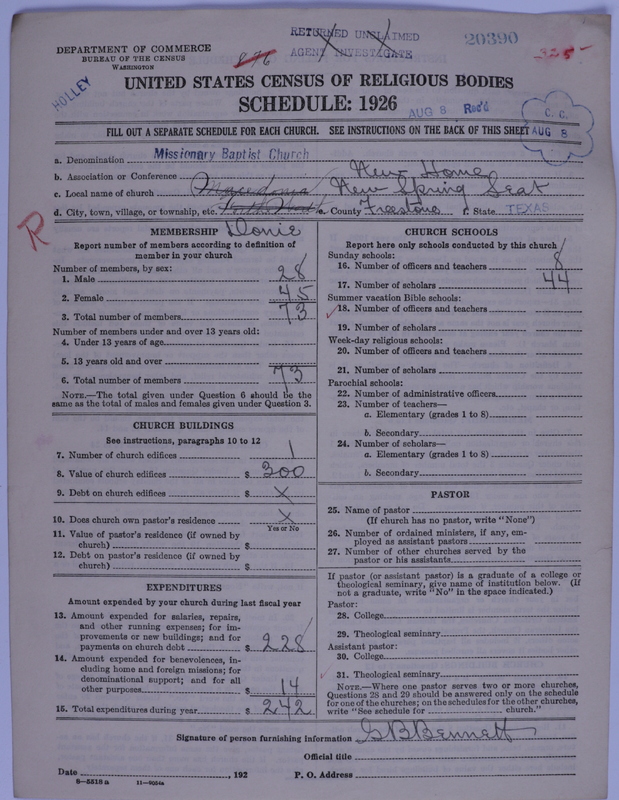 RETURNED UNCLAIMED
AGENT INVESTIGATE
20390
325-
876
DEPARTMENT OF COMMERCE
BUREAU OF THE CENSUS
WASHINGTON
HOLLEY
UNITED STATES CENSUS OF RELIGIOUS BODIES
SCHEDULE: 1926
AUG 8 Rec'd
C. C.
AUG 8
FILL OUT A SEPARATE SCHEDULE FOR EACH CHURCH. SEE INSTRUCTIONS ON THE BACK OF THIS SHEET
a. Denomination Missionary Baptist Church
b. Association or Conference New Home
c. Local name of church Macedonia New Spring Seat
d. City, town, village, or township, etc. e. County Freestone f. State TEXAS
R
Donie
MEMBERSHIP
Report number of members according to definition of
member in your church
Number of members, by sex:
1. Male 28
2. Female 45
3. Total number of members 73
Number of members under and over 13 years old:
4. Under 13 years of age
5. 13 years old and over
6. Total number of members 73
NOTE.—The total given under Question 6 should be the
same as the total of males and females given under Question 3.
CHURCH BUILDINGS
See instructions, paragraphs 10 to 12
7. Number of church edifices 1
8. Value of church edifices $ 300
9. Debt on church edifices $ X
10. Does church own pastor's residence X
Yes or No
11. Value of pastor's residence (if owned by
church) $
12. Debt on pastor's residence (if owned by
church) $
EXPENDITURES
Amount expended by your church during last fiscal year
13. Amount expended for salaries, repairs,
and other running expenses; for im-
provements or new buildings; and for
payments on church debt $ 228
14. Amount expended for benevolences, in-
cluding home and foreign missions; for
denominational support; and for all
other purposes $ 14
15. Total expenditures during year $ 242
CHURCH SCHOOLS
Report here only schools conducted by this church
Sunday schools:
16. Number of officers and teachers 8
17. Number of scholars 44
Summer vacation Bible schools:
18. Number of officers and teachers
19. Number of scholars
Week-day religious schools:
20. Number of officers and teachers
21. Number of scholars
Parochial schools:
22. Number of administrative officers
23. Number of teachers—
a. Elementary (grades 1 to 8)
b. Secondary
24. Number of scholars—
a. Elementary (grades 1 to 8)
b. Secondary
PASTOR
25. Name of pastor
(If church has no pastor, write "None")
26. Number of ordained ministers, if any, em-
ployed as assistant pastors
27. Number of other churches served by the
pastor or his assistants
If pastor (or assistant pastor) is a graduate of a college or
theological seminary, give name of institution below. (If
not a graduate, write "No" in the space indicated.)
Pastor:
28. College
29. Theological seminary
Assistant pastor:
30. College
31. Theological seminary
NOTE.—Where one pastor serves two or more churches,
Questions 28 and 29 should be answered only on the schedule
for one of the churches; on the schedules for the other churches,
write "See schedule for church."
Signature of person furnishing information G B Bennett
Official title
Date , 192 P. O. Address
6-5518 a 11-8054a